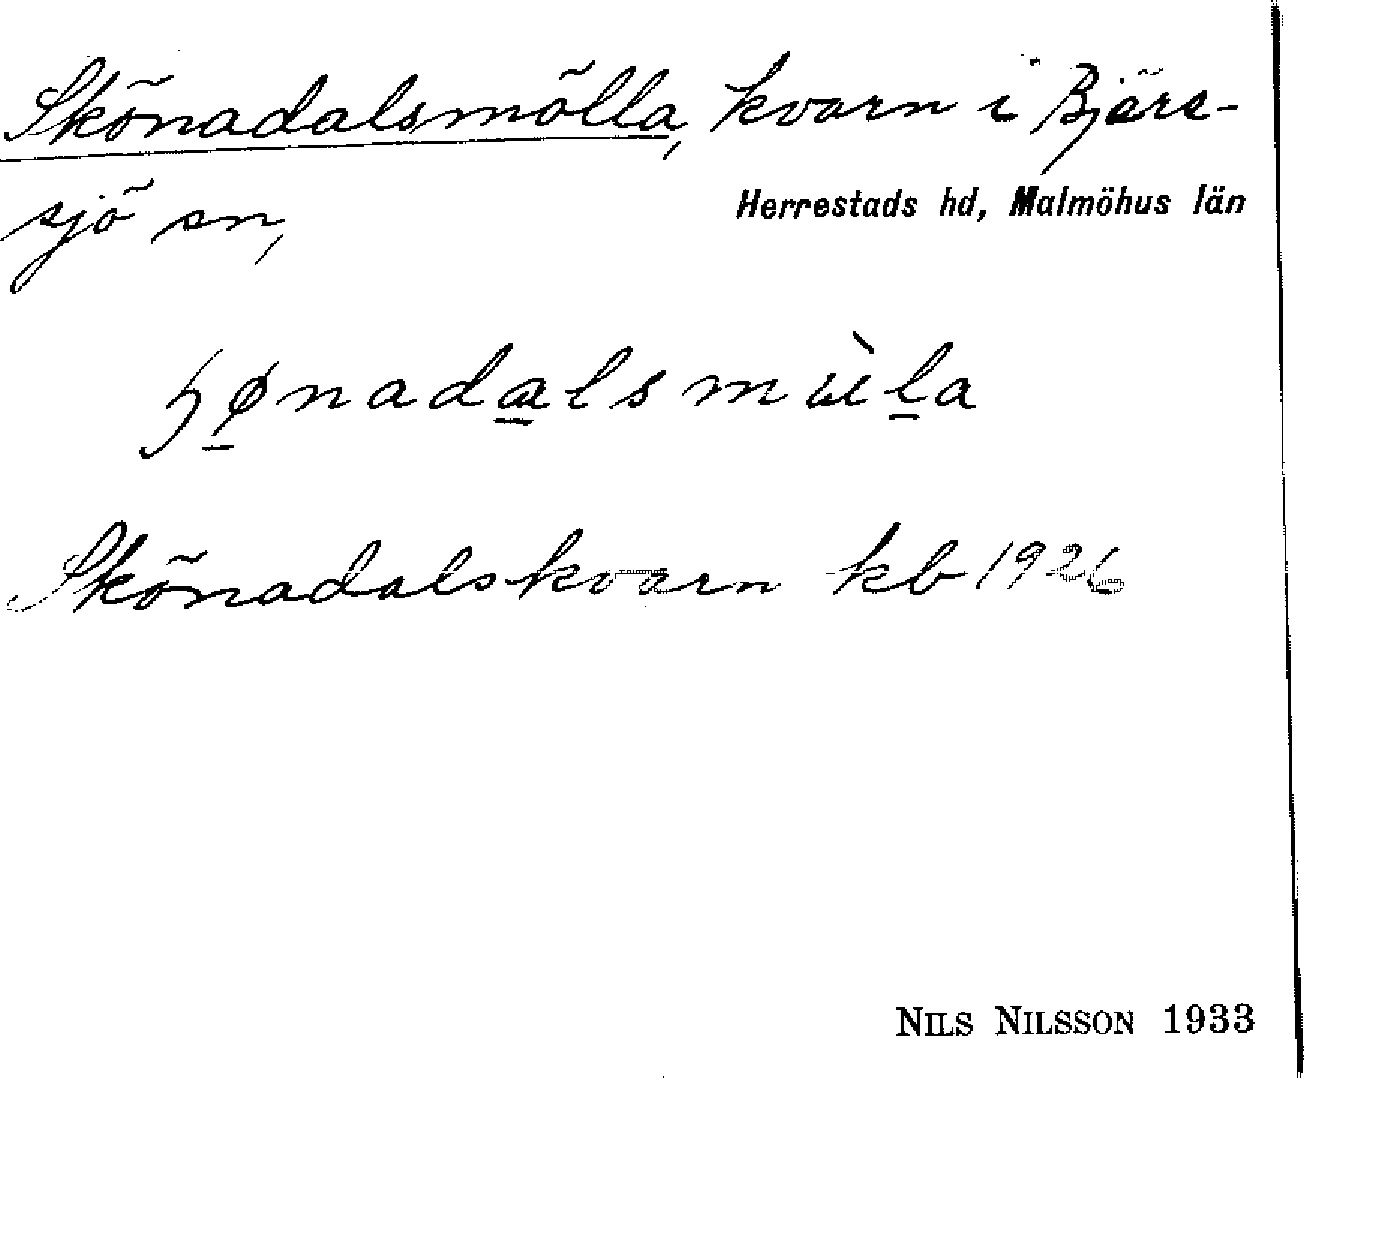 Skönadalsmölla, kvarn i Bjäre-
sjö sn,
Herrestads hd, Malmöhus län
Skönadalskvarn kb 1926
NILS NILSSON 1933